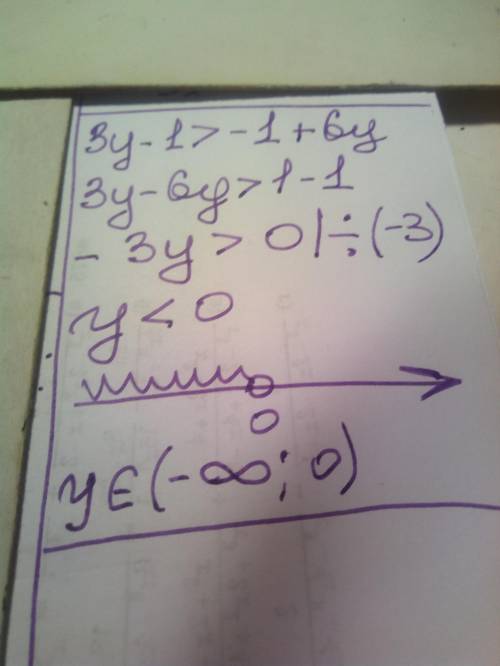 3y - 1 > -1 + 6y
3y - 6y > 1 - 1
- 3y > 0 | ÷ (-3)
y < 0
0
y ∈ (-∞; 0)